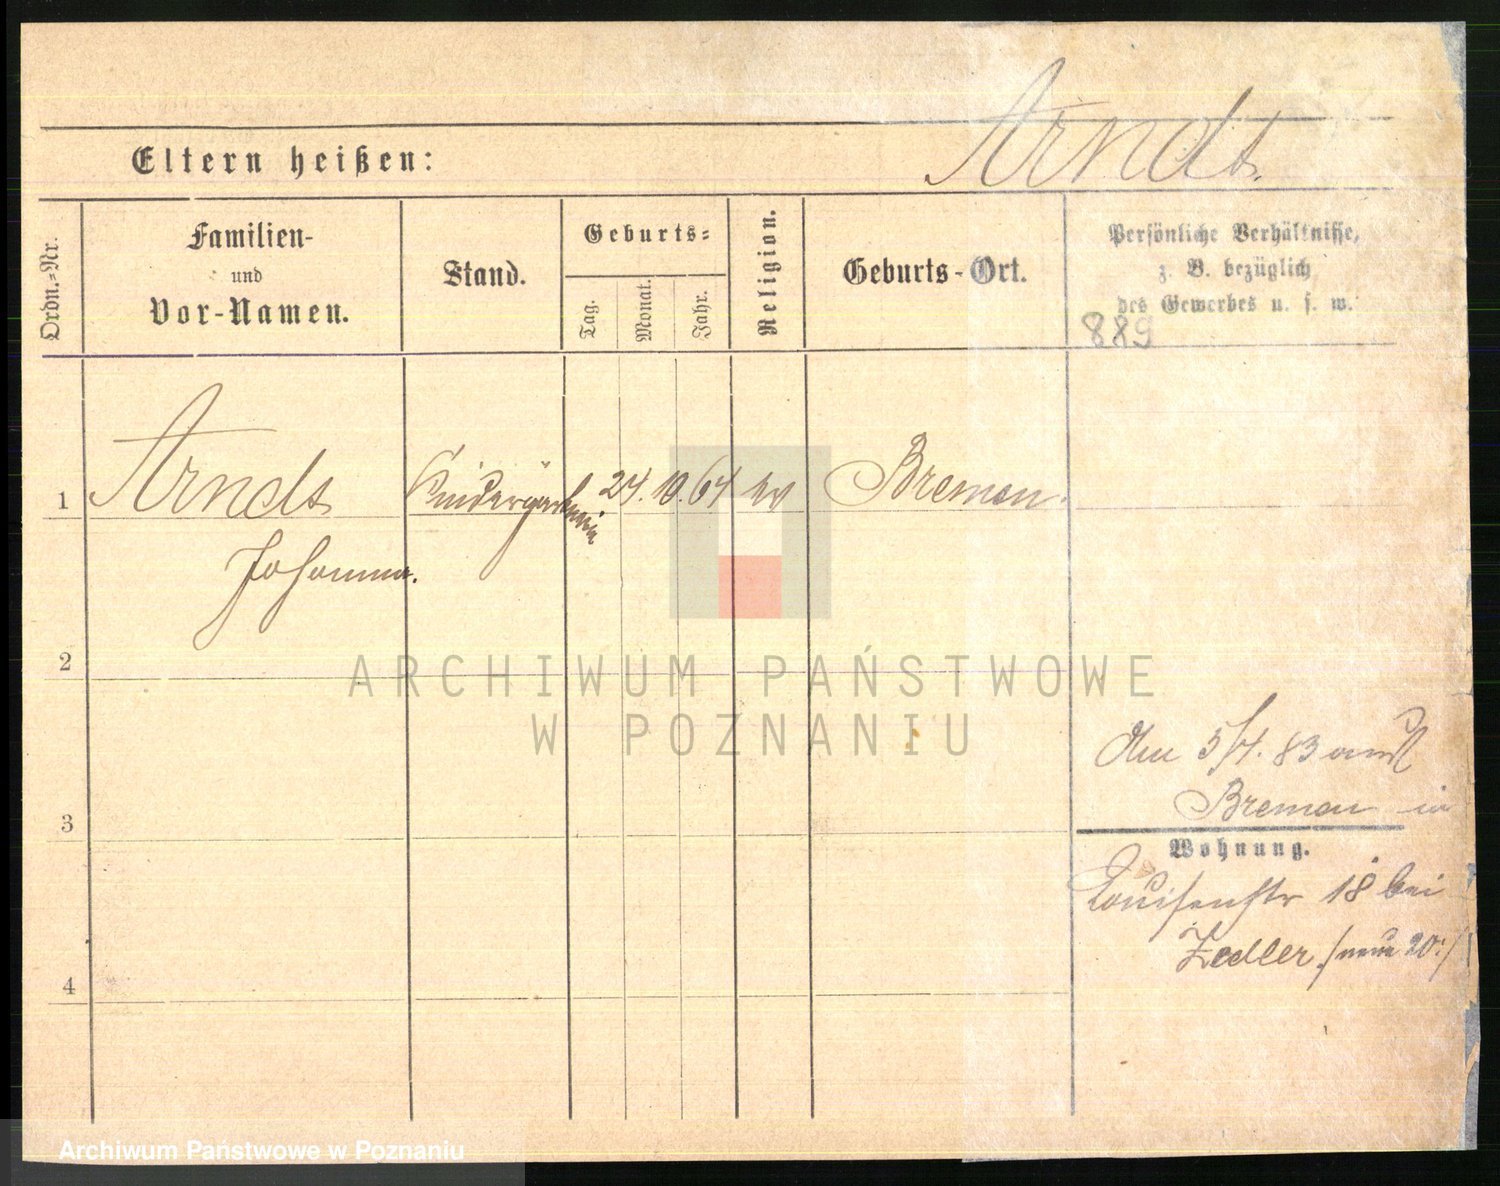 Arndt.
Eltern heißen:
Ordn.-Nr.
Familien-
und
Vor-Namen.
Stand.
Geburts-
Tag.
Monat.
Jahr.
Religion.
Geburts-Ort.
Persönliche Verhältnisse,
z. B. bezüglich
des Gewerbes u. s. w.
889
1 Arndt Kindergärtnerin 24. 10. 64 ev Bremen.
Johanna.
2
ARCHIWUM PAŃSTWOWE
W POZNANIU
3
4
Am 5/4. 83 aus
Bremen in
Wohnung.
Louisenstr 18 bei
Zedler /neue 20./
Archiwum Państwowe w Poznaniu